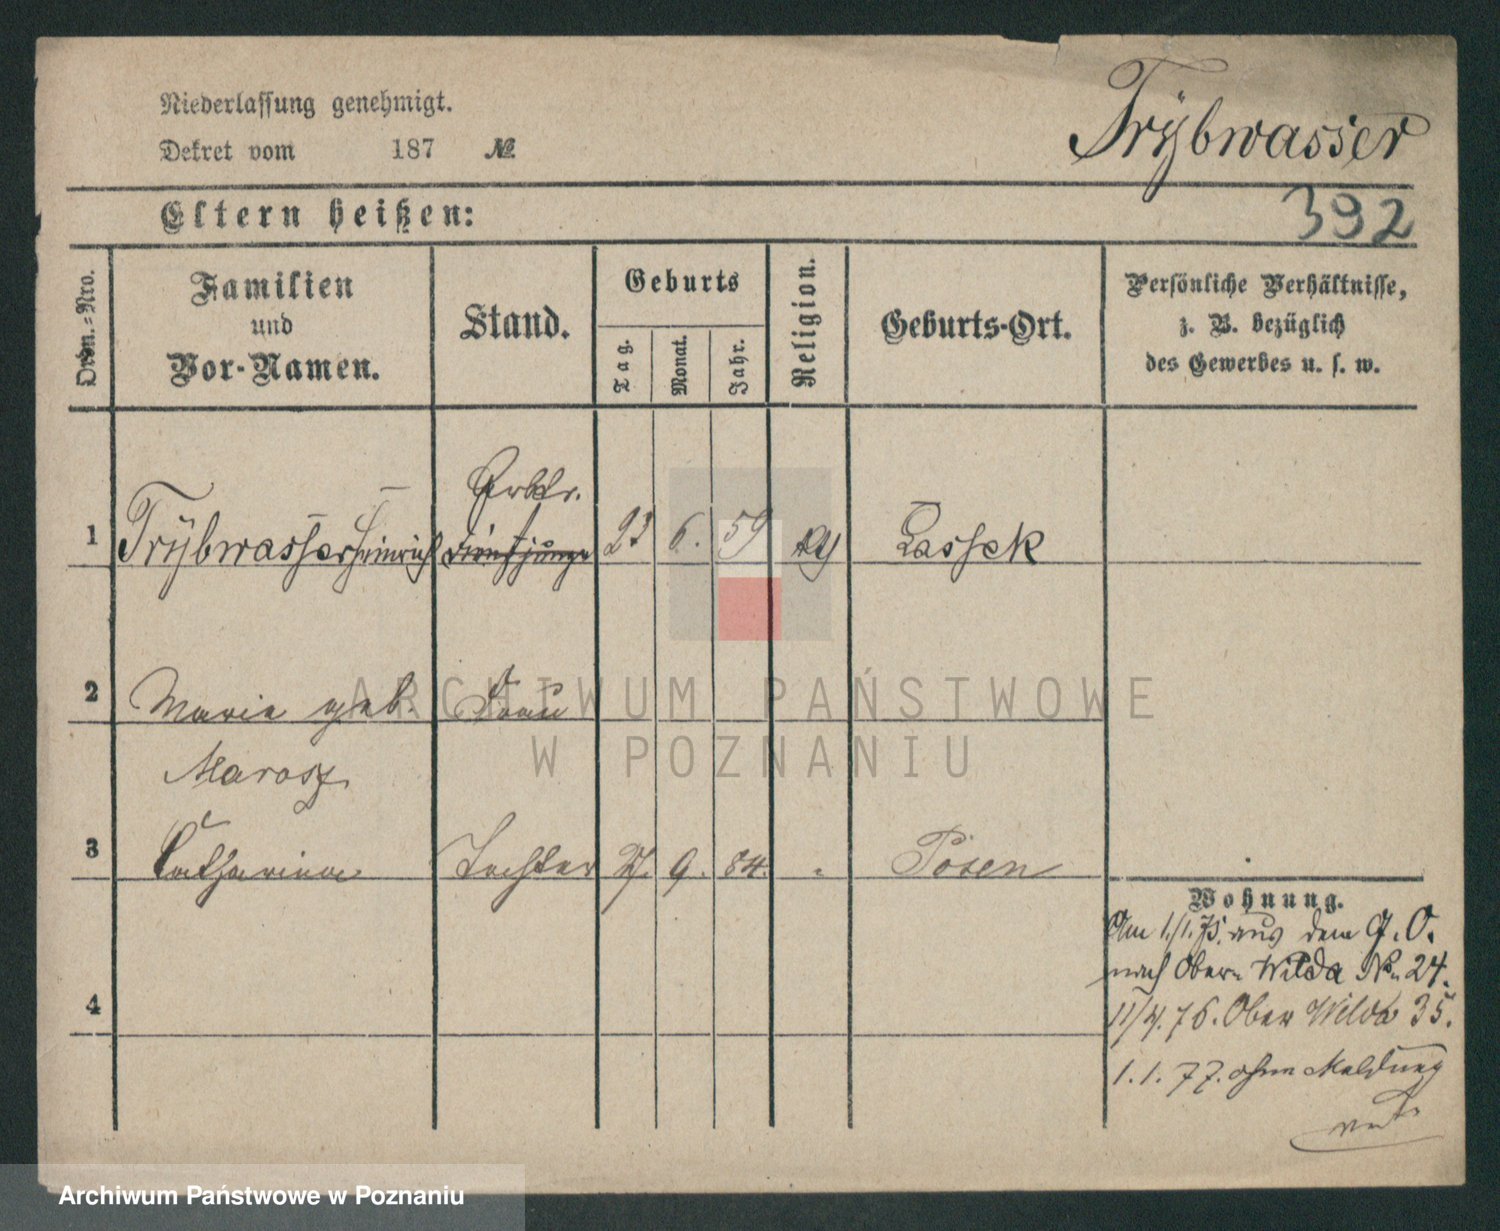 Niederlassung genehmigt.
Dekret vom 187 №
Trÿbwasser
392
Eltern heißen:
Ordn.-Nro.
Familien
und
Vor-Namen.
Stand.
Geburts
Tag.
Monat.
Jahr.
Religion.
Geburts-Ort.
Persönliche Verhältnisse,
z. B. bezüglich
des Gewerbes u. s. w.
Arbtr.
1 Trÿbwasser Heinrich Dienstjunge 23 6. 59 Lassek
2 Marie geb. Frau
Marosz
3 Catharina Tochter 27. 9. 84. " Posen
4
Wohnung.
Am 1./1. 75. aus dem G. O.
nach Ober Wilda No 24.
11/4. 76. Ober Wilda 35.
1. 1. 77. ohne Meldung
ARCHIWUM PAŃSTWOWE
W POZNANIU
Archiwum Państwowe w Poznaniu